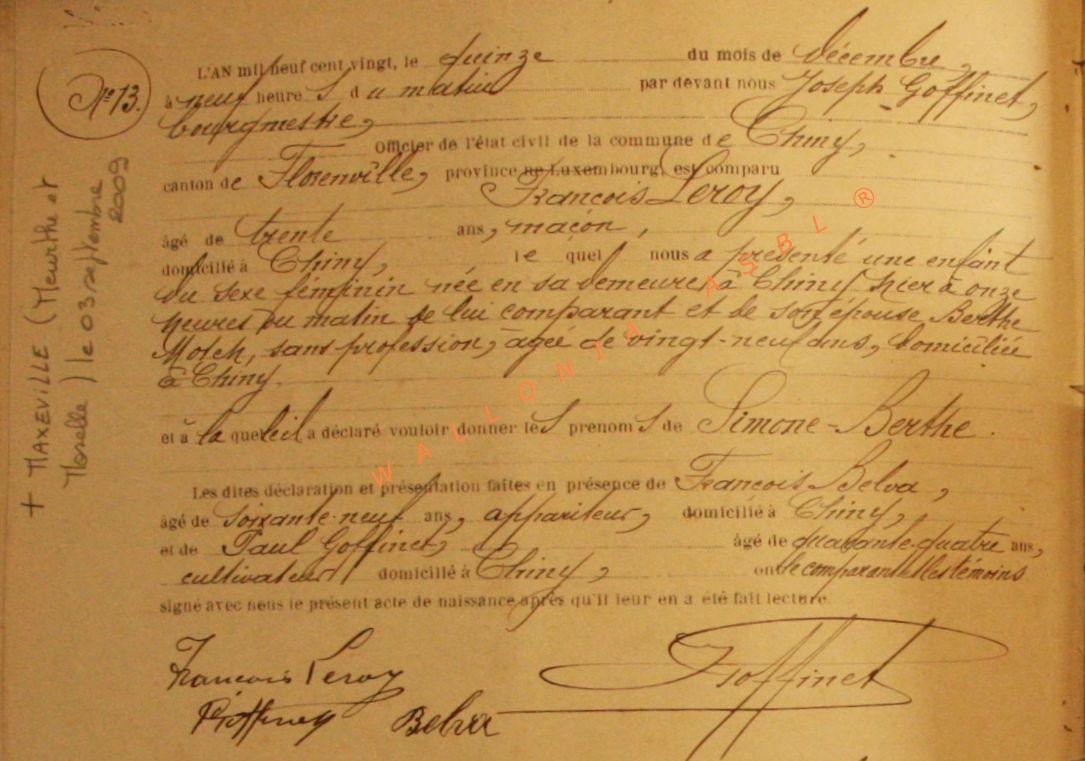 N° 13.
L'AN mil neuf cent vingt, le quinze du mois de décembre,
à neuf heure s du matin par devant nous Joseph Goffinet,
bourgmestre,
Officier de l'état civil de la commune de Chiny,
canton de Florenville, province de Luxembourg, est comparu
François Leroy,
âgé de trente ans, maçon,
domicilié à Chiny, le quel nous a présenté une enfant
du sexe féminin née en sa demeure, à Chiny hier à onze
heures du matin de lui comparant et de son épouse Berthe
Motch, sans profession, âgée de vingt-neuf ans, domiciliée
à Chiny.
et à laquelle il a déclaré vouloir donner les prénoms de Simone-Berthe.
Les dites déclaration et présentation faites en présence de François Belva,
âgé de soixante-neuf ans, appariteur, domicilié à Chiny,
et de Paul Goffinet, âgé de quarante-quatre ans,
cultivateur domicilié à Chiny, ont le comparant et les témoins
signé avec nous le présent acte de naissance après qu'il leur en a été fait lecture.
François Leroy
Goffinet
PGoffinet Belva
+ MAXEVILLE (Meurthe et
Moselle) le 03 septembre
2009
WALONIA ASBL ®